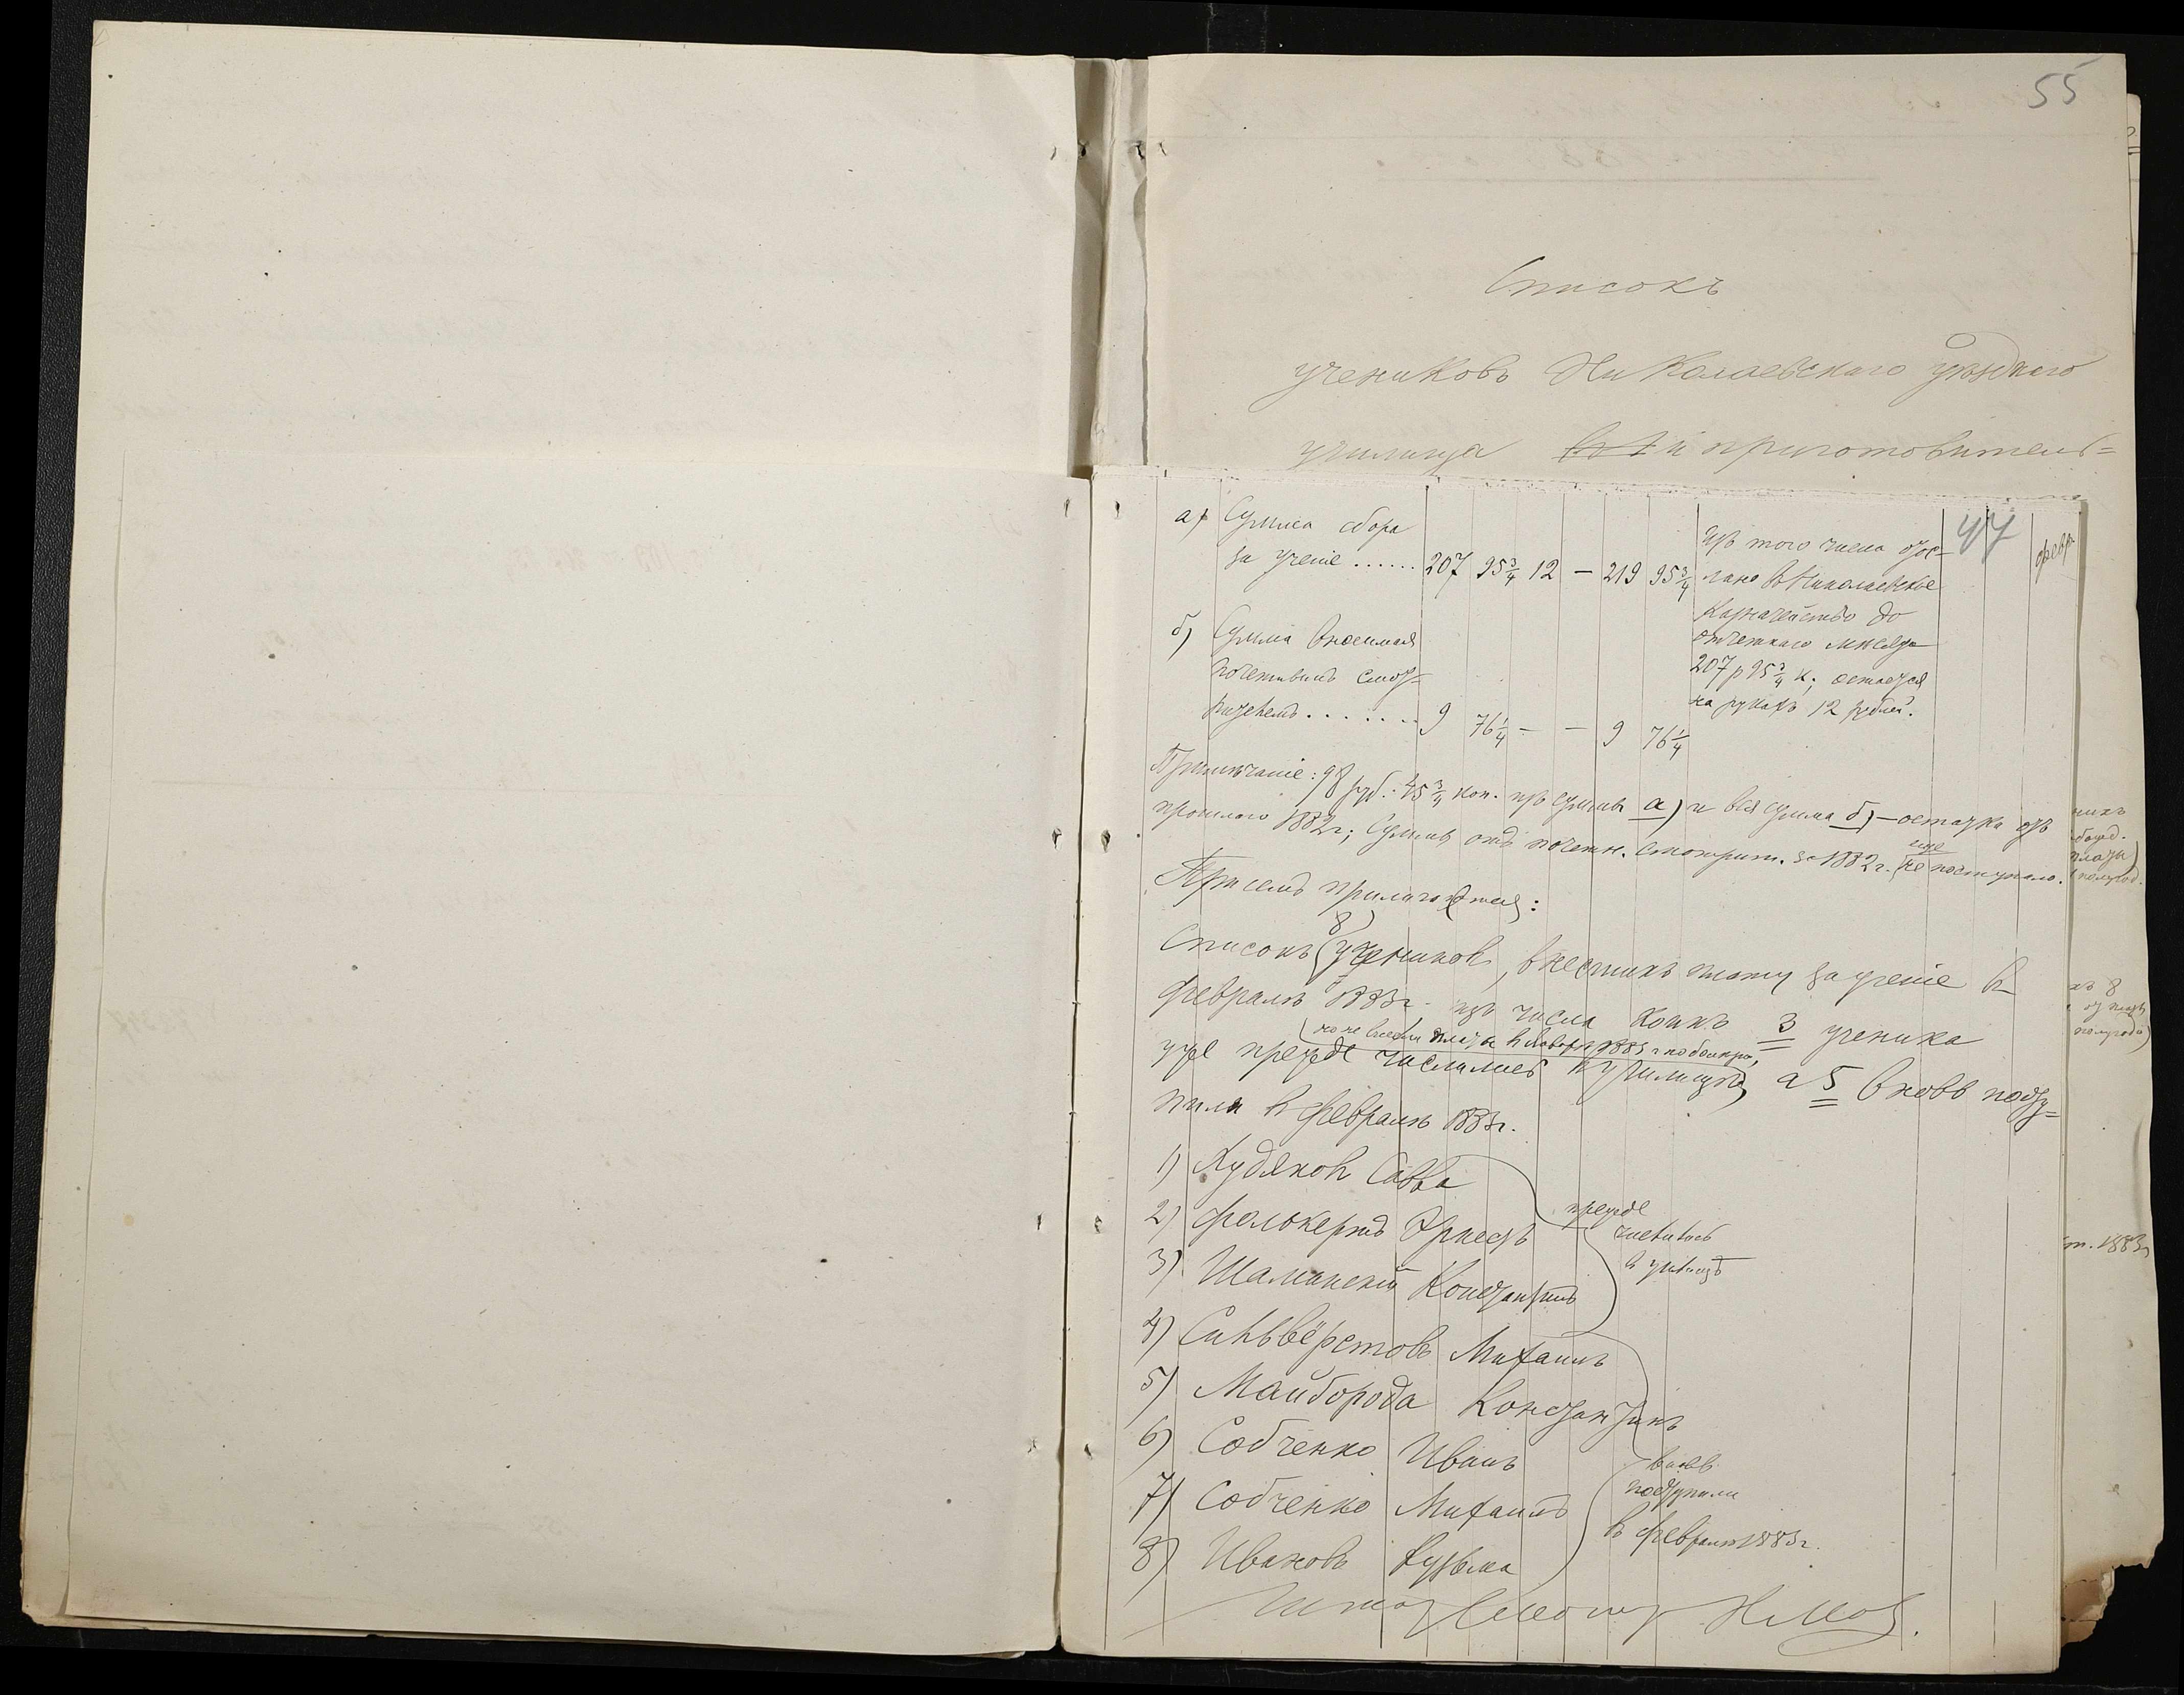 55
Списокъ
учениковъ Николаевскаго уѣзднаго
училища въ 1й приготовитель=
47
а) Сумма сбора
за ученіе ...... 207 95 3/4 12 — 219 95 3/4
Изъ того числа отос-
лано въ Николаевское
Казначейство до
отчетнаго мѣсяца
207 р 95 3/4 к; остается
на рукахъ 12 рублей.
февр
б) Сумма вносимая
почетнымъ смот-
рителемъ ....... 9 76 1/4 — — 9 76 1/4
Примѣчаніе: 98 руб. 45 3/4 коп. изъ суммы а) и вся сумма б) — остатки отъ
прошлаго 1882 г; Суммъ отъ почетн. смотрит. за 1882 г. еще не поступало.
При семъ прилагается:
Списокъ (8) учениковъ, внесшихъ плату за ученіе въ
февралѣ 1883 г. изъ числа коихъ 3 ученика
уже прежде числились въ училищѣ (но не внесли платы въ январѣ 1883 г по болѣзни), а 5 вновь посту=
пили въ февралѣ 1883 г.
1) Худяковъ Савва
2) Фолькертъ Эрнестъ
3) Шаманскій Константинъ
прежде
числились
въ училищѣ
4) Сильвёрстовъ Михаилъ
5) Майборода Константинъ
6) Собченко Иванъ
7) Собченко Михаилъ
8) Ивановъ Кузьма
вновь
поступили
въ февралѣ 1883 г.
Штат Смотр
нихъ
платы)
хъ 8
полугодія)
т. 1883